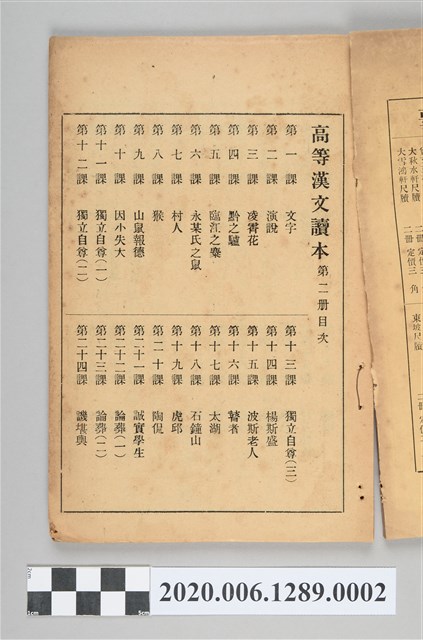 高等漢文讀本 第二冊目次
第一課 文字
第二課 演說
第三課 凌霄花
第四課 黔之驢
第五課 臨江之麋
第六課 永某氏之鼠
第七課 村人
第八課 猴
第九課 山鼠報德
第十課 因小失大
第十一課 獨立自尊(一)
第十二課 獨立自尊(二)
第十三課 獨立自尊(三)
第十四課 楊斯盛
第十五課 波斯老人
第十六課 瞽者
第十七課 太湖
第十八課 石鐘山
第十九課 虎邱
第二十課 陶侃
第二十一課 誠實學生
第二十二課 論葬(一)
第二十三課 論葬(二)
第二十四課 譏堪輿
大秋水軒尺牘 二冊 定價三
大雪鴻軒尺牘 二冊 定價三角
東坡尺牘
2cm
1cm
5cm
2020.006.1289.0002